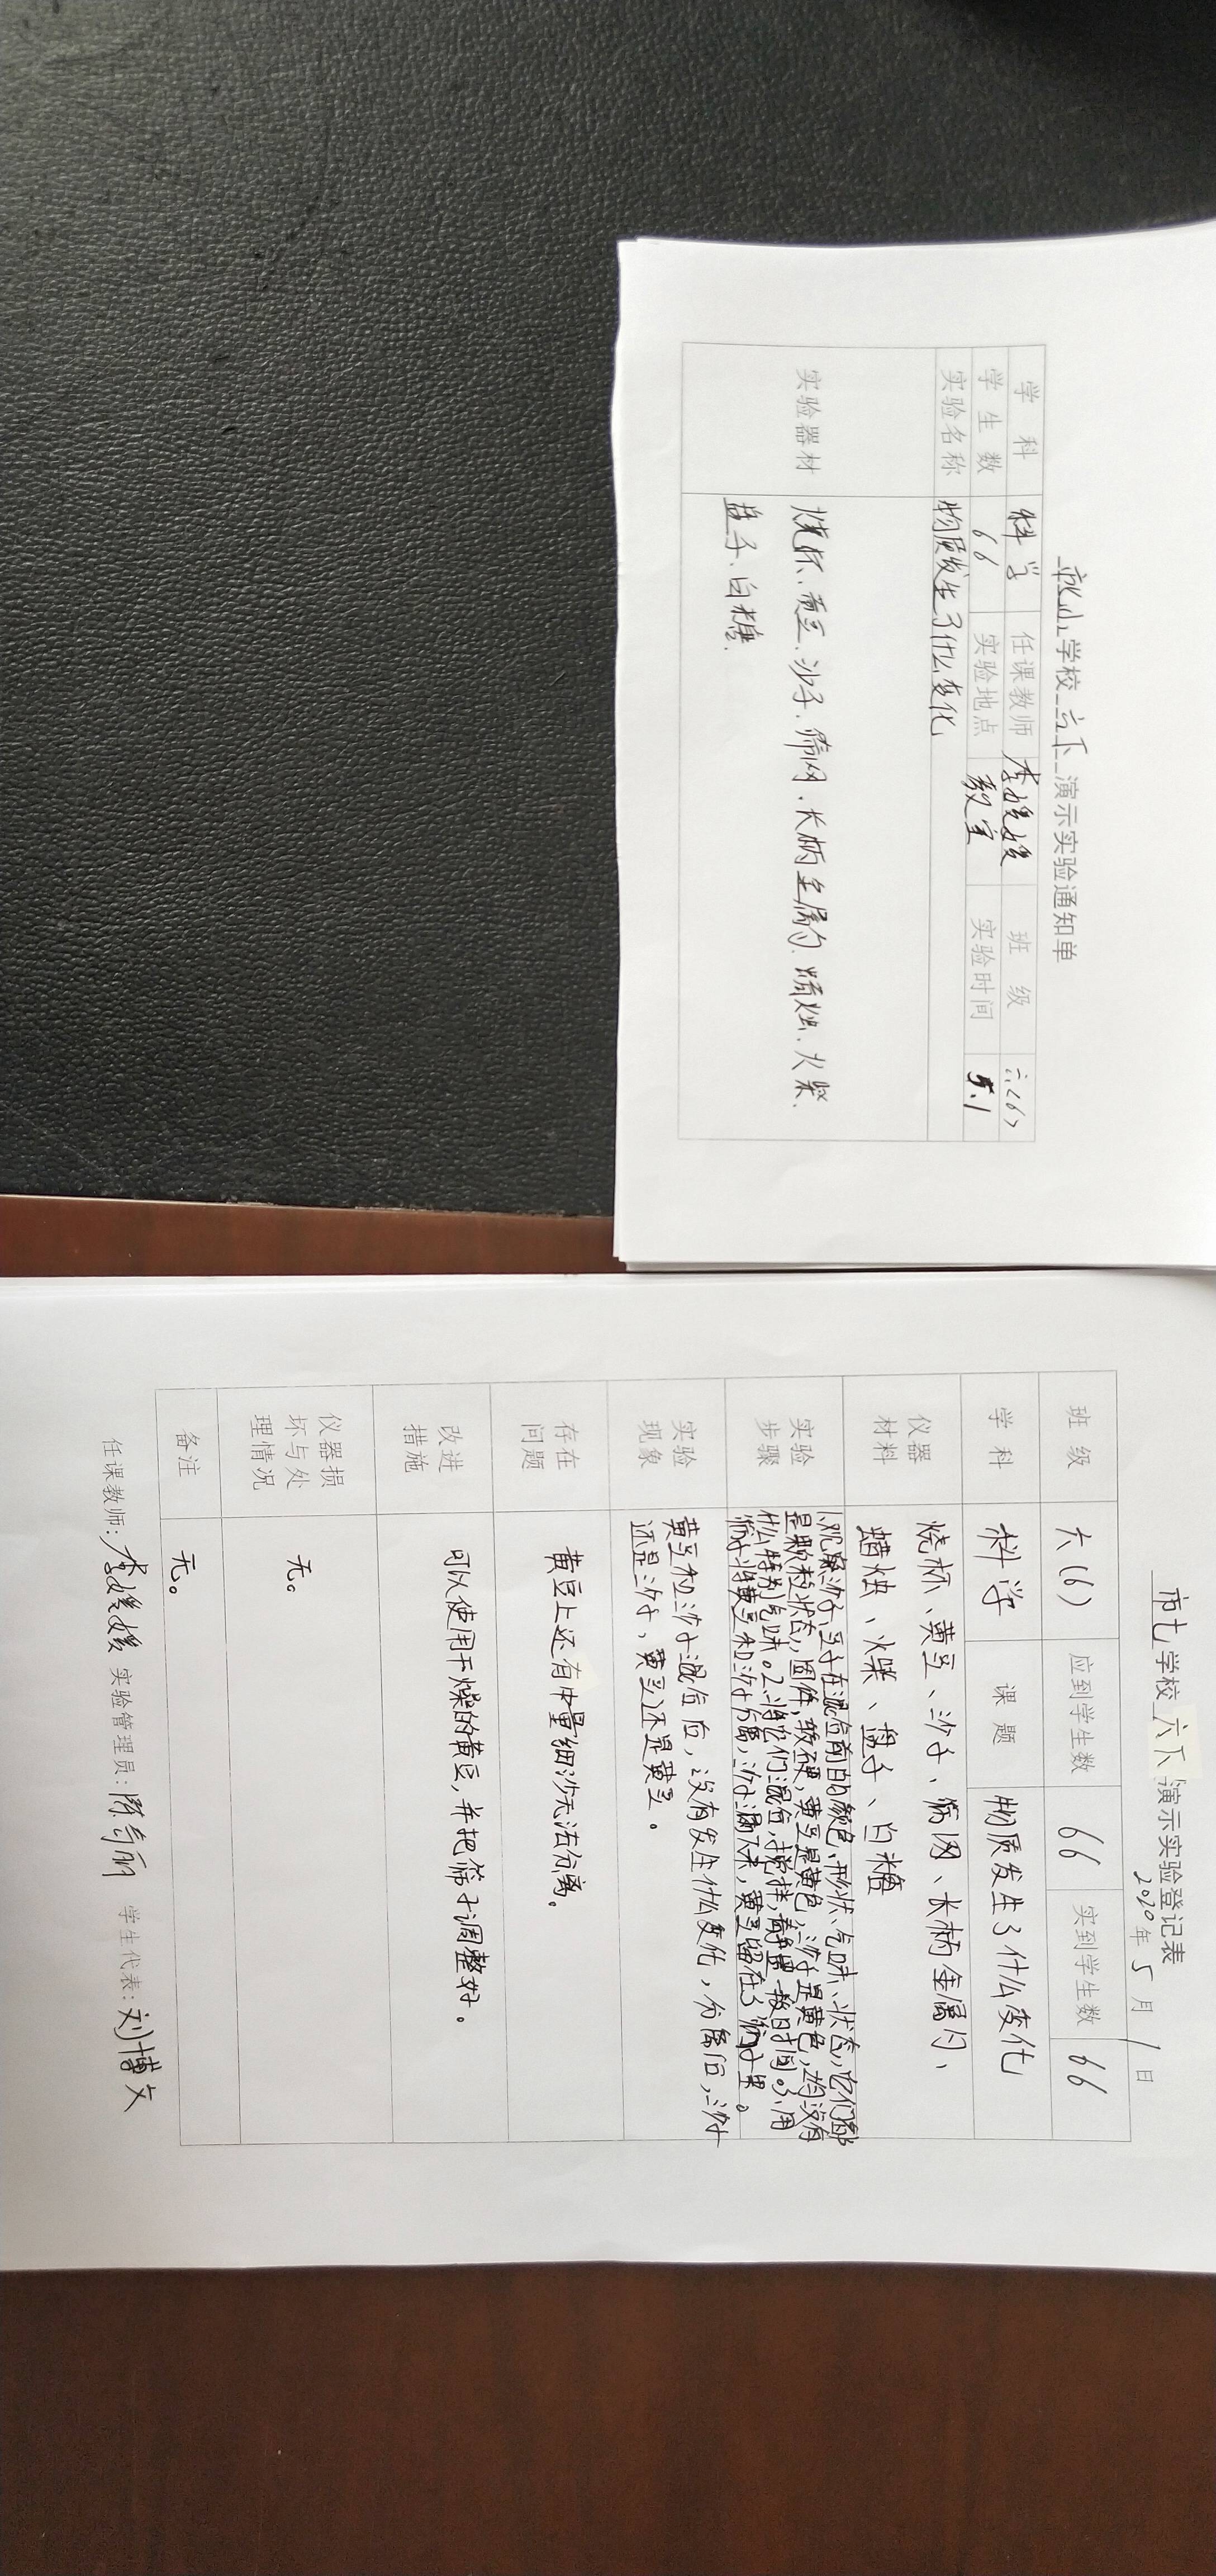 学校 六下 演示实验通知单
学科 科学 任课教师 李媛媛 班级 六(6)
学生数 66 实验地点 教室 实验时间 5.1
实验名称 物质发生了什么变化
实验器材 烧杯、黄豆、沙子、筛网、长柄金属勺、蜡烛、火柴、
盘子、白糖、
市七学校 六下 演示实验登记表
2020年5月1日
班级 六(6) 应到学生数 66 实到学生数 66
学科 科学 课题 物质发生了什么变化
仪器材料 烧杯、黄豆、沙子、筛网、长柄金属勺、
蜡烛、火柴、盘子、白糖
实验步骤 1、观察沙子、豆子在混合前的颜色、形状、气味、状态,它们都
是颗粒状态,固体,较硬,黄豆是黄色,沙子是黄色,均没有
什么特别气味。2、将它们混合,搅拌,静置一段时间。3、用
筛子将黄豆和沙子分离,沙子漏下来,黄豆留在了筛子里。
实验现象 黄豆和沙子混合后,没有发生什么变化,分离后,沙子
还是沙子,黄豆还是黄豆。
存在问题 黄豆上还有少量细沙无法分离。
改进措施 可以使用干燥的黄豆,并把筛子调整好。
仪器损坏与处理情况 无。
备注 无。
任课教师:李媛媛 实验管理员:陈 丽 学生代表:刘博文